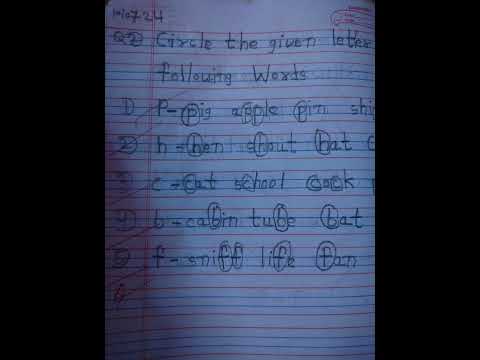 Q2 Circle the given letter
following Words
1) P- pig apple pin ship
2) h - hen shout hat
3) c - cat school cook
4) b - cabin tube bat
5) f - sniff life fan